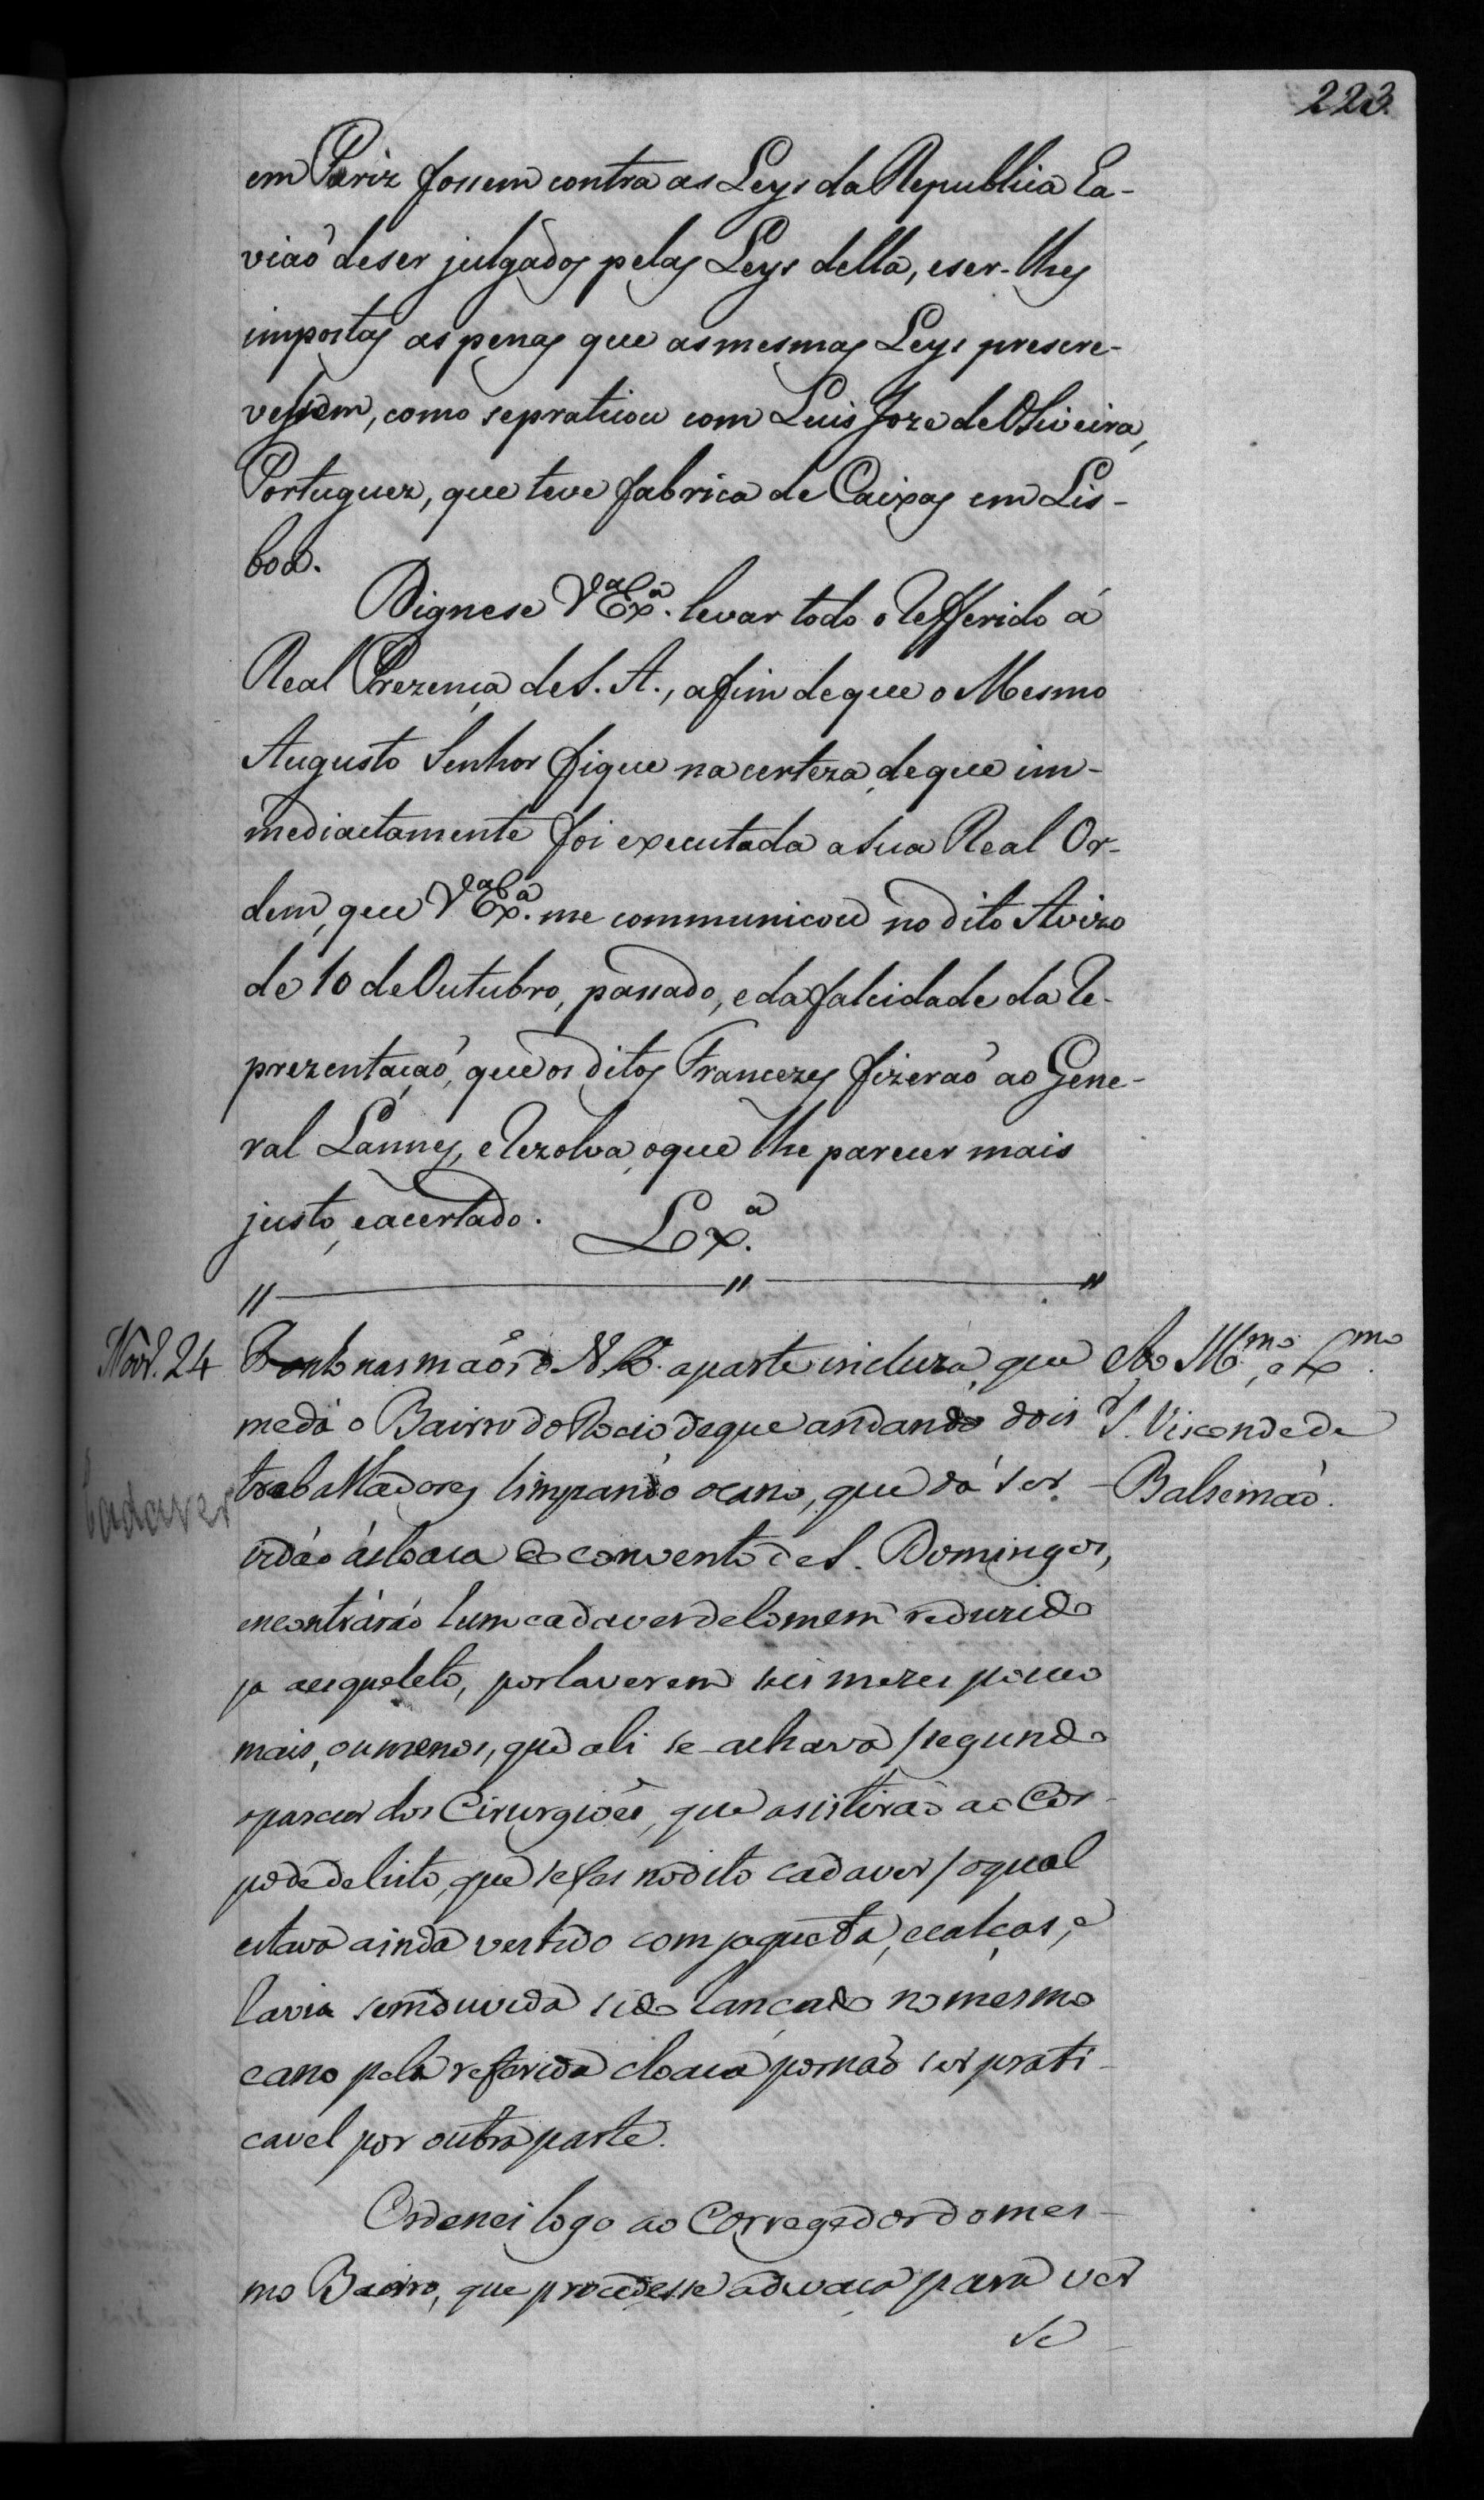 223.
em Pariz fossem contra as Leys da Republica ha-
viaõ de ser julgados pelas Leys della, e ser-lhes
impostas as penas que as mesmas Leys prescre-
vessem, como se praticou com Luis Joze de Oliveira,
Portuguez, que teve fabrica de Caixas em Lis-
boa.
Digne se V.ª Ex.ª levar todo o Refferido á
Real Prezença de S. A., afim de que o Mesmo
Augusto Senhor fique na certeza, de que im-
mediactamente foi executada a sua Real Or-
dem, que V.ª Ex.ª me communicou no dito Avizo
de 10 de Outubro, passado, e da falcidade da Re-
prezentaçaõ, que os ditos Francezes fizeraõ ao Gene-
ral Lannes, e Rezolva, o que lhe parecer mais
justo, e acertado. Lx.ª
Nov. 24
Ponho nas maõs de V. Ex. a parte incluza, que
me dá o Bairro do Rocio de que andando dois
trabalhadores limpando o cano, que dá ser-
vidaõ á cloaca do convento de S. Domingos,
encontráraõ hum cadaver de homem reduzido
ja a esqueleto, por haverem seis mezes pouco
mais, ou menos, que ali se achava / segundo
o parecer dos Cirurgioẽs, que asistiraõ ao Cor-
po de delicto, que se fes no dito cadaver / o qual
estava ainda vestido com jaqueta, e calças, e
havia sem duvida sido lançado no mesmo
cano pela referida cloaca por naõ ser prati-
cavel por outra parte.
Ordenei logo ao Corregedor do mes-
mo Bairro, que procedesse a devaça para ver
se
Ao Ill.mo, e Ex.mo
S.r Visconde de
Balsemaõ.
Cadaver